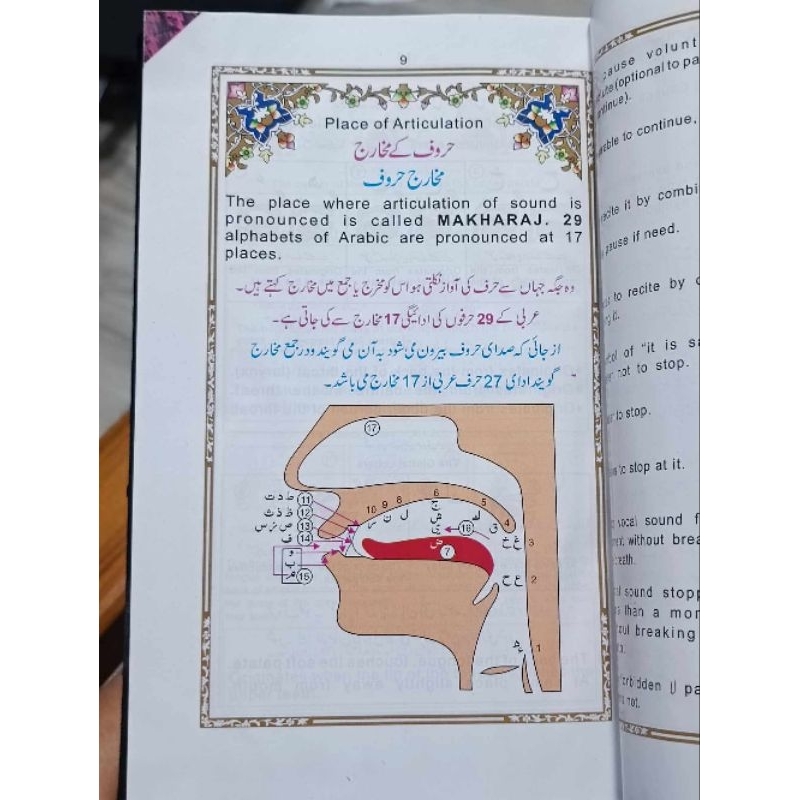 9
Place of Articulation
حروف کے مخارج
مخارج حروف
The place where articulation of sound is
pronounced is called MAKHARAJ. 29
alphabets of Arabic are pronounced at 17
places.
وہ جگہ جہاں سے حرف کی آواز نکلتی ہو اس کو مخرج یا جمع میں مخارج کہتے ہیں۔
عربی کے 29 حرفوں کی ادائیگی 17 مخارج سے کی جاتی ہے۔
از جائی کہ صدای حروف بیرون می شود بہ آن می گویند و در جمع مخارج
گویند ادای 27 حرف عربی از 17 مخارج می باشد۔
17
11 ط د ت
12 ظ ذ ث
13 ص ز س
14 ف
و
ب
15 م
10 9 8 6 5 4
ر ن ل
ج
ش
ی
ک ق
16
ض
7
غ خ 3
ع ح 2
1
ause volunt
(optional to pa
to continue,
it by combi
pause if need.
to recite by
of "it is sa
not to stop.
to stop.
to stop at it.
vocal sound f
without brea
sound stopp
than a mor
breaking
forbidden لا pa
not.